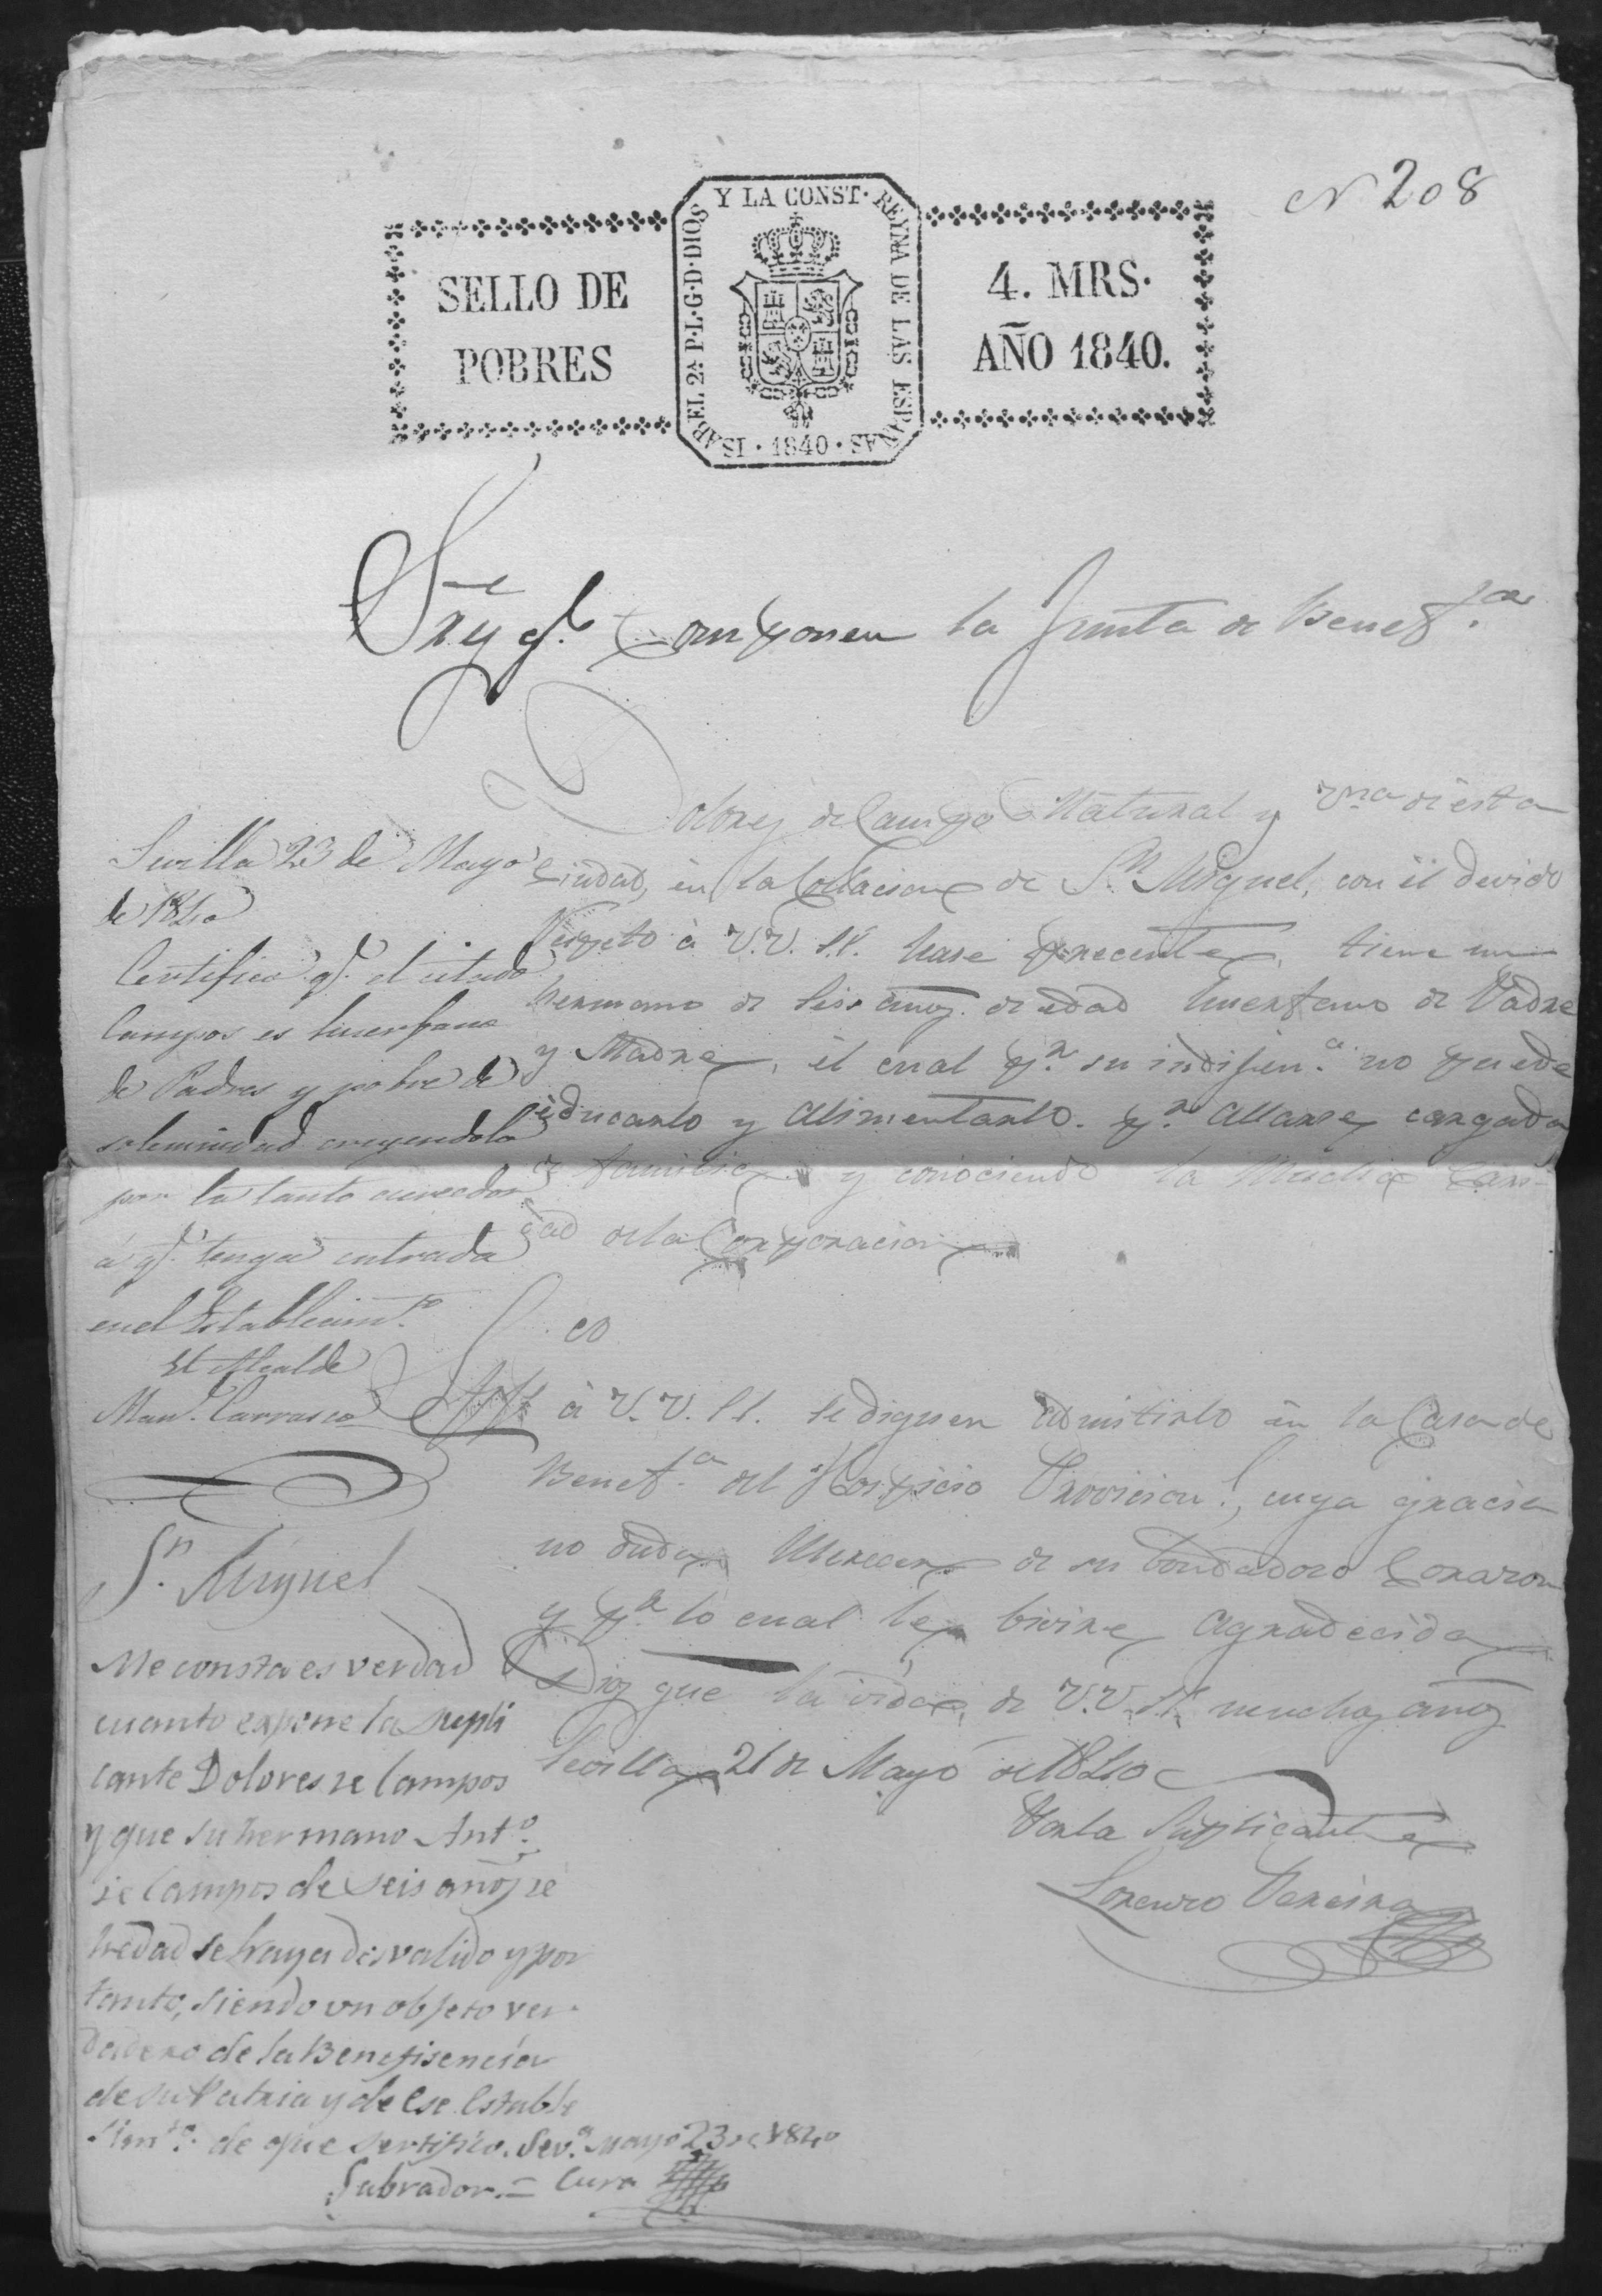 N 208
SELLO DE
POBRES
ISABEL 2ª P·L·G·D·DIOS Y LA CONST· REYNA DE LAS ESPAÑAS · 1840 ·
4. MRS·
AÑO 1840.
Sres q.e componen la Junta de Benef.cia
Dolores de Campos Natural y vna de esta
Ciudad, en la Collacion de Sn Miguel, con el devido
Respeto à V.V. S.S. hase precente, tiene un
hermano de seis años de edad huerfano de Padre
y Madre, el cual pr. su indijen.a no puede
educarlo y alimentarlo. pr. allarse cargada
de familia y conociendo la mucha cari-
dad de la Corporacion
à V.V. S.S. se dignen admitirlo en la Casa de
Benef.a del Hospicio Provicion.l, cuya gracia
no duda Merecer de su bondadoso Corazon
y pr. lo cual le bivira Agradecida
Dios gue la vida de V.V. S.S. muchos años
Sevilla 21 de Mayo de 1840
Por la Suplicante
Lorenzo Pereira
Sevilla 23 de Mayo
de 1840
Certifico q.e el citado
Campos es huerfano
de Padres y pobre de
solemnidad creyendolo
por lo tanto acreedor
á q.e tenga entrada
en el Establecim.to
El Alcalde
Man.l Carrasco
Sn. Miguel
Me consta es verdad
cuanto expone la supli
cante Dolores de Campos
y que su hermano Ant.o
de Campos de seis años de
hedad se haya desvalido y por
tanto, siendo un objeto ver-
dadero de la Benefisencia
de su Patria y de ese Estable
sim.to de que sertifico. Sev.a Mayo 23 de 1840
Labrador.= Cura